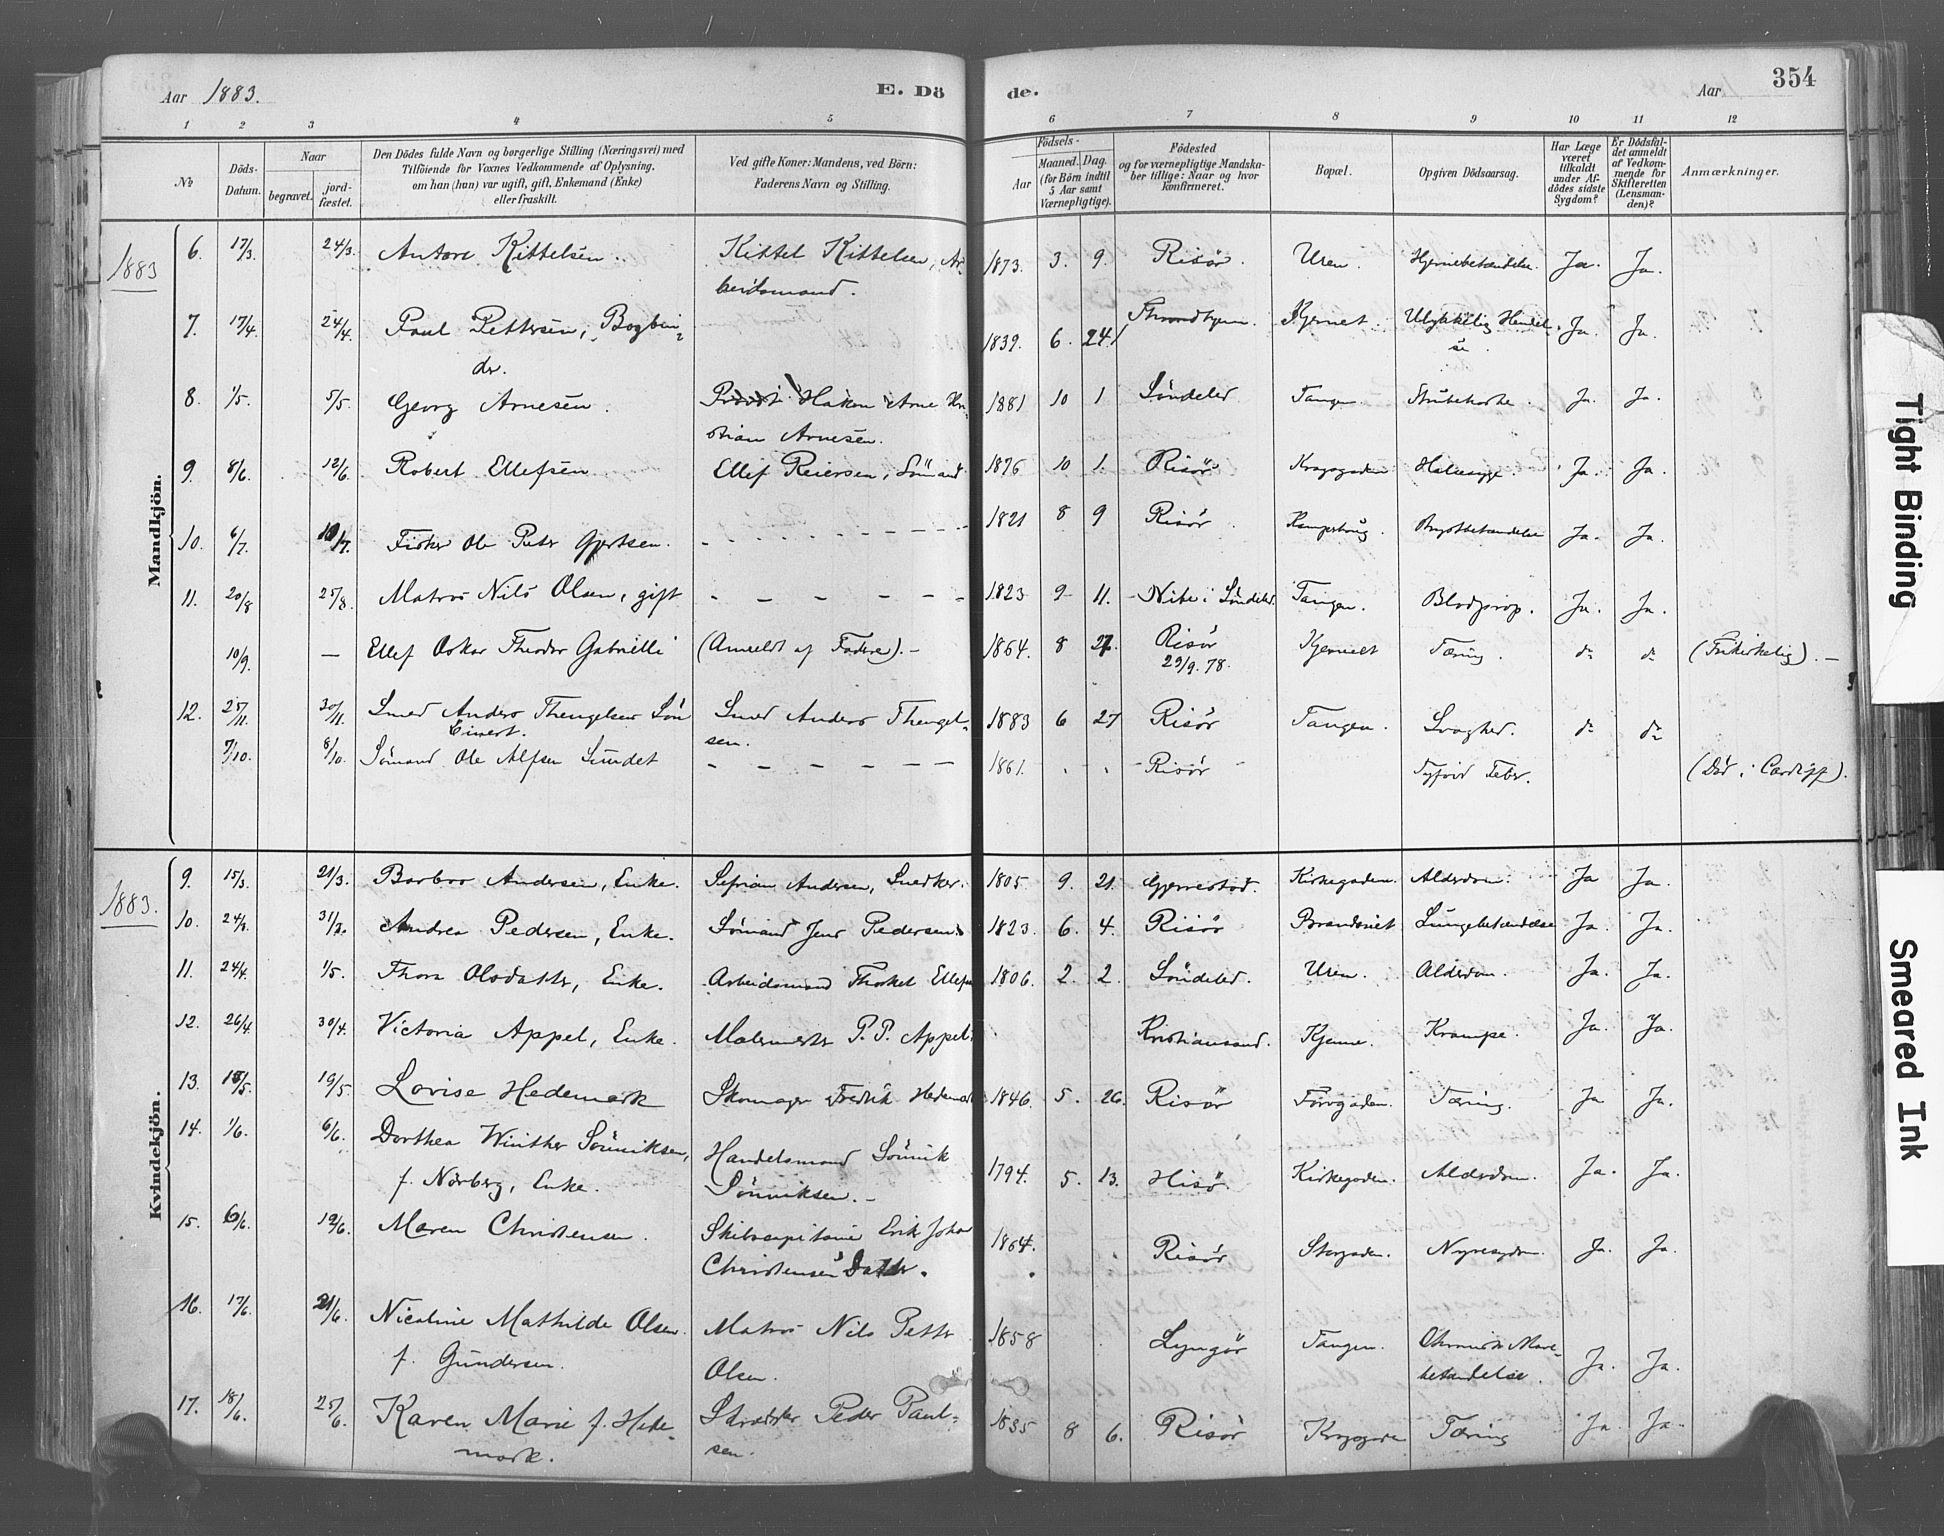 Aar 1883.
E. Dö
de.
Aar
354
1 2 3 4 5 6 7 8 9 10 11 12
№
Döds-Datum.
Naar
begravet.
jord-fæstet.
Den Dödes fulde Navn og borgerlige Stilling (Næringsvei) med
Tilföiende for Voxnes Vedkommende af Oplysning.
om han (hun) var ugift, gift, Enkemand (Enke)
eller fraskilt.
Ved gifte Koner: Mandens, ved Börn:
Faderens Navn og Stilling.
Födsels-
Aar
Maaned. Dag.
(for Börn indtil
5 Aar samt
Værnepligtige).
Födested
og for værnepligtige Mandska-
ber tillige: Naar og hvor
konfirmeret.
Bopæl.
Opgiven Dödsaarsag.
Har Læge
været
tilkaldt
under Af-
dödes sidste
Sygdom?
Er Dödsfal-
det anmeldt
af Vedkom-
mende for
Skifteretten
(Lensman-
den)?
Anmærkninger.
Mandkjön.
1883
6. 17/3. 24/3. Kittelsen. Kittel Kittelsen, Ar- 1873. 3. 9. Risör. Uren. Hjernebetændelse. Ja. Ja.
beidsmand.
7. 17/4. 24/4. Paul Pettersen, Bogbin- 1839. 6. 24. Throndhjem. Kjernet. Ulykkelig Hendel- Ja. Ja.
der. se.
8. 1/5. 5/5. Georg Arnesen. Hakon Arne Kri- 1881 10 1 Söndeled Tangen. Strubehoste. Ja. Ja.
stian Arnesen.
9. 8/6. 12/6. Robert Ellefsen Ellef Reiersen, Sömand 1876 10 1. Risör Kragsgaden Halsesyge. Ja. Ja.
10. 6/7. 10/7. Fisker Ole Peter Gjertsen. 1821 8 9 Risör Brystbetændelse Ja. Ja.
11. 20/8 25/8. Matros Nils Olsen, gift - - - - - - 1823 9 11. i Söndeled. Tangen. Blodprop. Ja. Ja.
10/9. — Ellef Oskar Theodor Gabrielli (Anmeldt af Fadere). - 1864. 8 27. Risör Kjernet Tæring. do do (Frikirkelig). -
29/9. 78.
12. 25/11. 30/11. Smed Anders Thengelsens Sön Smed Anders Thengel- 1883 6 27 Risör Tangen. Svaghed. do do
Einert. sen.
7/10. 8/10. Sömand Ole Alfsen Sundet - - - - - - 1861. - Risör - Tyfoid Feber. (Död i Cardiff).
Kvindekjön.
1883.
9. 15/3. 21/3. Barbro Andersen, Enke. Sefrian Andersen, Snedker. 1805 9. 21. Gjerrestad. Kirkegaden. Alderdom. Ja Ja.
10. 24/3. 31/3. Andrea Pedersen, Enke. Sömand Jens Pedersen. 1823. 6. 4. Risör Brandsriet Lungebetændelse Ja. Ja.
11. 24/4. 1/5. Thora Olsdatter, Enke. Arbeidsmand Thorkel Ellefsen 1806. 2. 2. Söndeled. Uren. Alderdom. Ja. Ja.
12. 26/4. 30/4. Victoria Appel, Enke. Malermester P. P. Appel. Kristiansand. Kjenne. Krampe. Ja. Ja.
13. 15/5. 19/5. Lovise Hedemark Skomager Fredrik Hedemark 1846. 5. 26. Risör Torvgaden. Tæring. Ja Ja.
14. 1/6. 6/6. Dorthea Winther Sönniksen, Handelsmand Sönnik 1794. 5. 13. Hisö. Kirkegaden. Alderdom. Ja. Ja.
f. Norberg, Enke. Sönniksen. -
15. 6/6. 12/6. Maren Christensen. Skibscapitain Erik Johan 1864. Risör Storgaden. Nyresygdom. Ja. Ja.
Christensens Datter.
16. 17/6. 21/6. Nicoline Mathilde Olsen Matros Nils Petter 1858 Lyngör Tangen. Ja. Ja.
f. Gundersen. Olsen. betændelse.
17. 18/6. 25/6. Karen Marie f. Hede- Peder Paul- 1835 8 6. Risör Kragsgaden Tæring Ja. Ja.
mark. sen.
Tight Binding
Smeared Ink